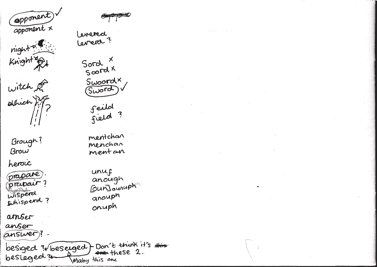 opponent ✓
opponent x
night x
Knight
witch
which ?
Brough?
Brow
heroic
prepare
prepair?
wisperd
whisperd?
anser
answer?
besiged ? beseiged - Don't think it's
these 2.
Maby this one
levered
leverd ?
Sord x
Soord x
Swoord x
Sword ✓
feild
field ?
mentchan
menchan
mentan
unuf
anough
anouph
onuph